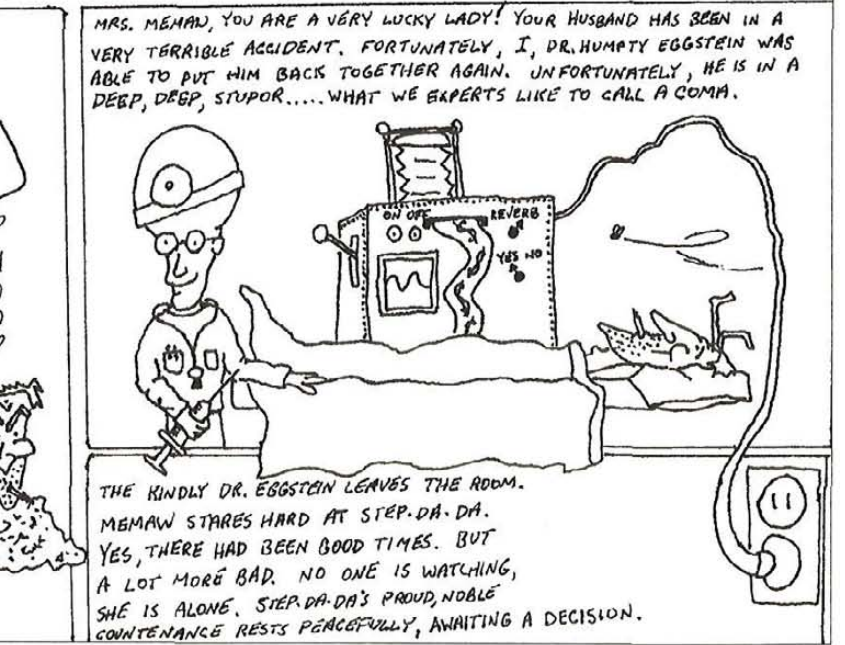 MRS. MEMAW, YOU ARE A VERY LUCKY LADY! YOUR HUSBAND HAS BEEN IN A
VERY TERRIBLE ACCIDENT. FORTUNATELY, I, DR. HUMPTY EGGSTEIN WAS
ABLE TO PUT HIM BACK TOGETHER AGAIN. UNFORTUNATELY, HE IS IN A
DEEP, DEEP, STUPOR.....WHAT WE EXPERTS LIKE TO CALL A COMA.
ON OFF
REVERB
YES NO
THE KINDLY DR. EGGSTEIN LEAVES THE ROOM.
MEMAW STARES HARD AT STEP.DA.DA.
YES, THERE HAD BEEN GOOD TIMES. BUT
A LOT MORE BAD. NO ONE IS WATCHING,
SHE IS ALONE. STEP.DA.DA'S PROUD, NOBLE
COUNTENANCE RESTS PEACEFULLY, AWAITING A DECISION.